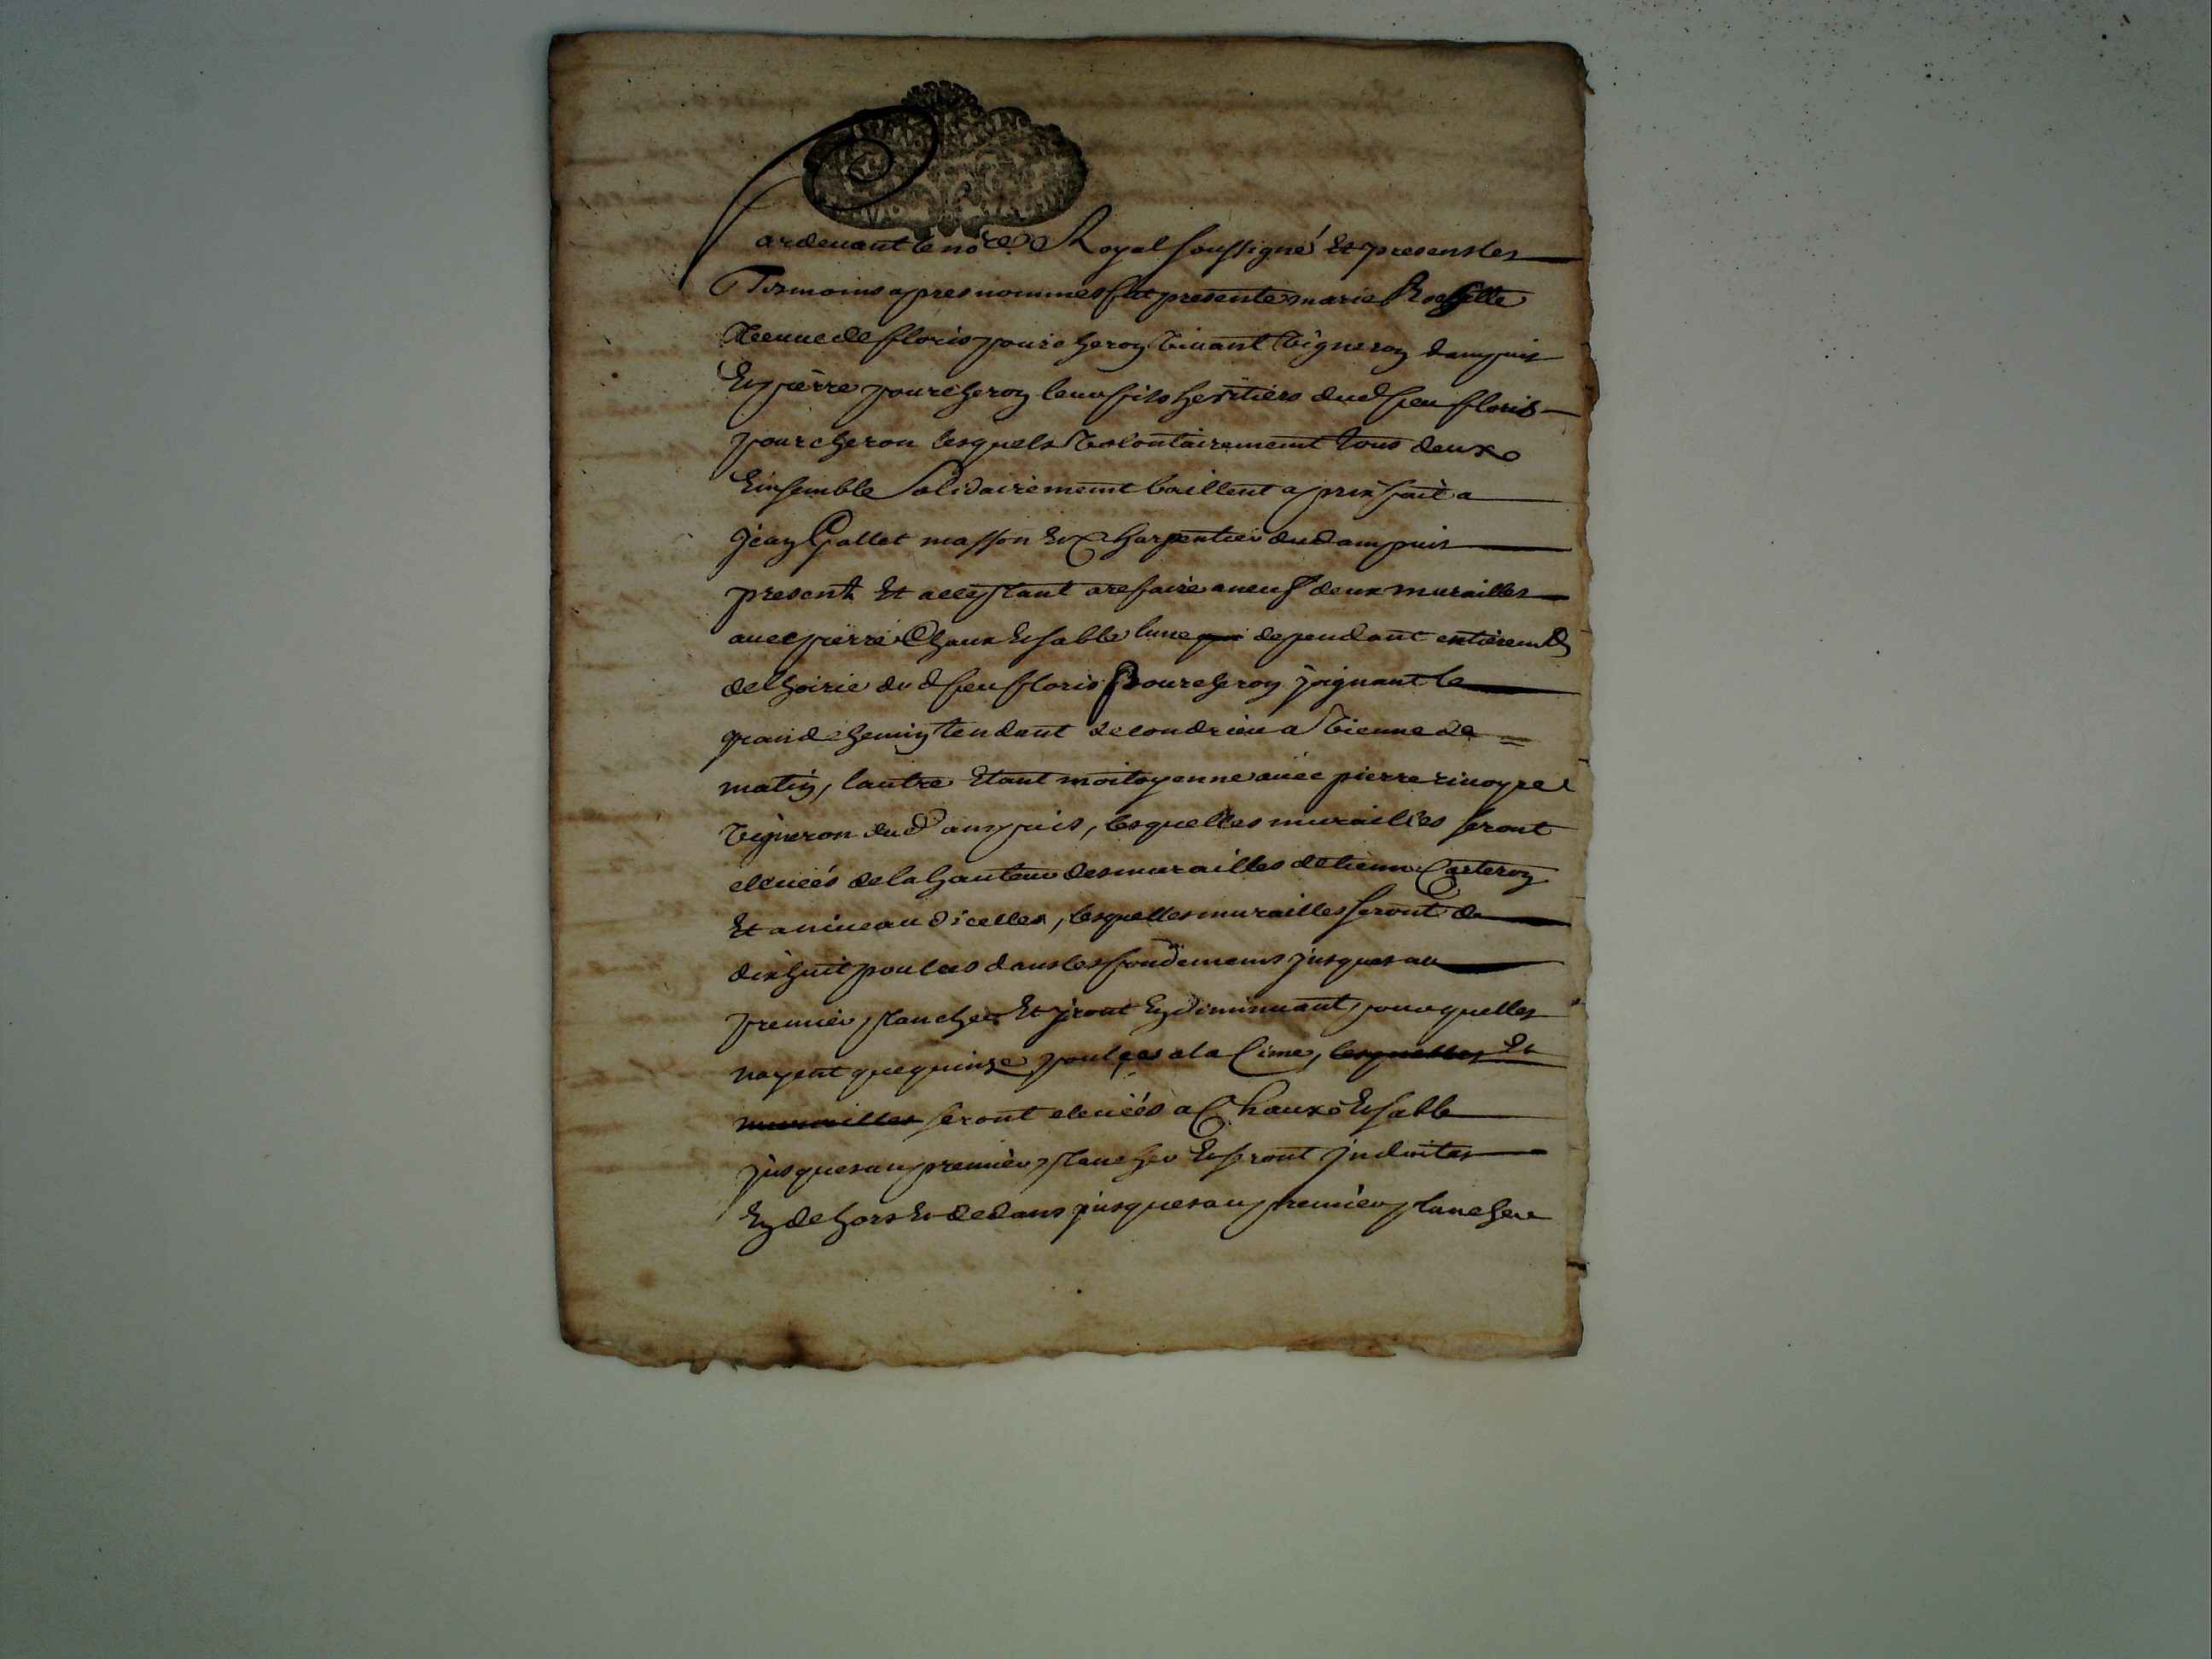 Pardeuant le no.re Royal soussigné Et presens les
Tesmoins apres nommes fut presente marie
Veuue de floris pourcheron viuant vigneron dampuis
Et pierre pourcheron leur fils heritiers dud feu floris
pourcheron lesquels volontairement tous deux
Ensemble solidairement baillent a prix fait a
Jean Gallet masson Et Charpentier dudampuis
present Et acceptant a refaire a neuf deux murailles
auec pierre Chaux Et sable lune qui dependant entierem.t
de lhoirie dud feu floris Pourcheron joignant le
grand chemin tendant de condrieu a vienne de
matin, lautre Etant moitoyenne auec pierre
vigneron dud ampuis, lesquelles murailles seront
eleuées de la hauteur des murailles detienne Carteron
Et a niueau dicelles, lesquelles murailles seront de
dix huit poulces dans les fondemens jusques au
premier plancher Et jront En diminuant, pour quelles
nayent que quinze poulces a la Cime, lesquelles Et
murailles seront eleuées a Chaux Et sable
jusques au premier plancher Et seront jnduites
En dehors Et dedans jusques au premier plancher